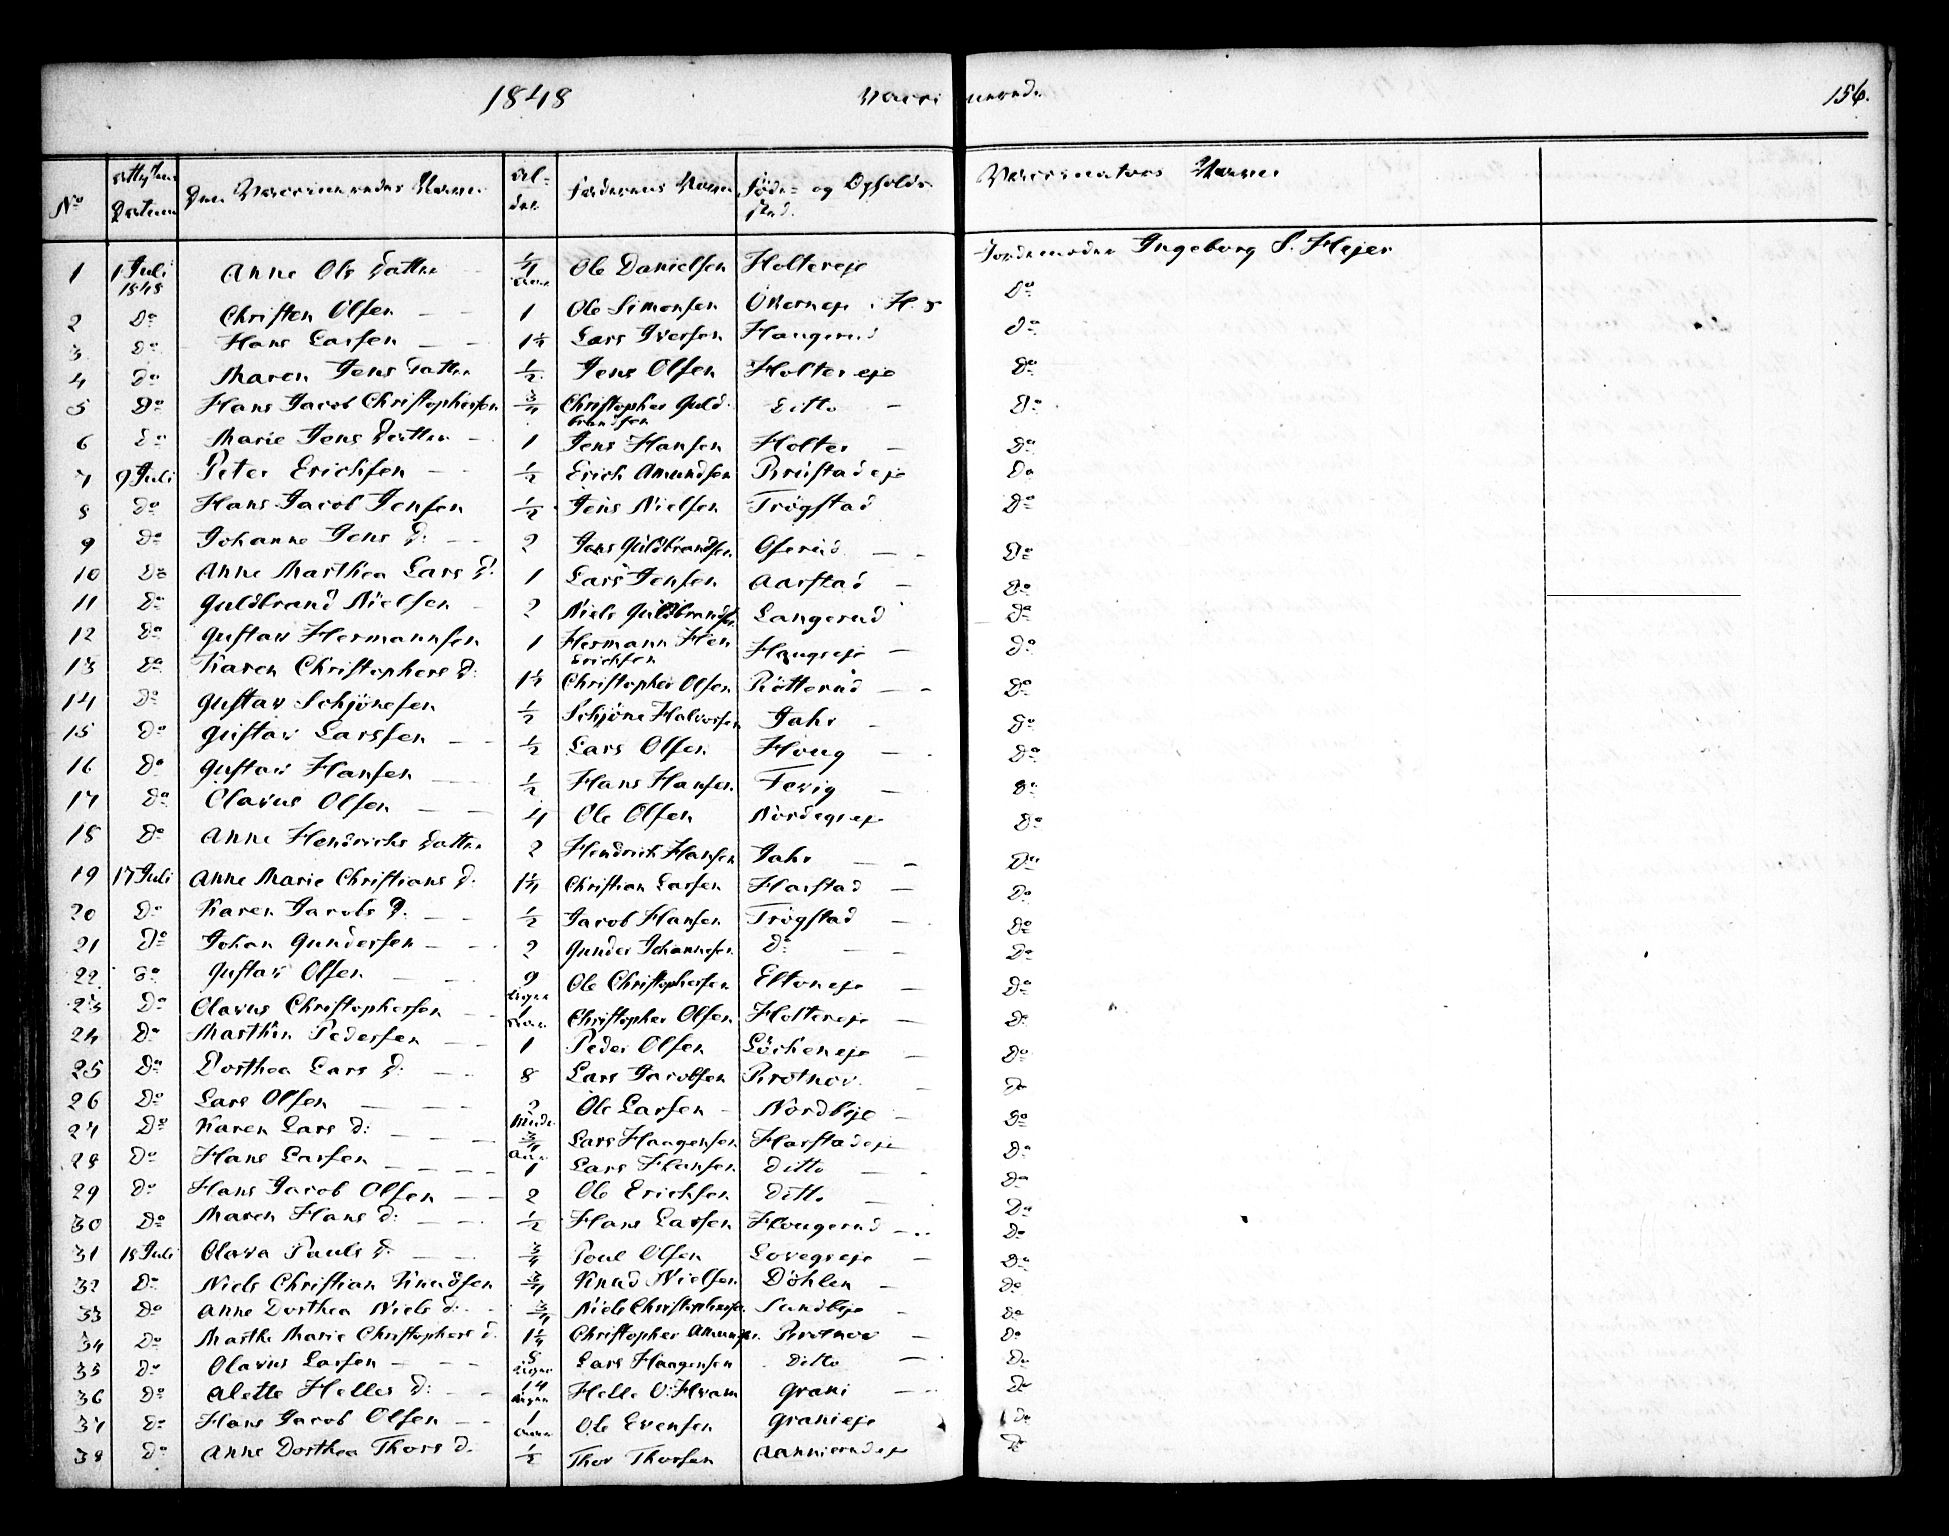 1848 Vaccinerede 156.
No Attestens Datum Den Vaccineredes Navn Alder Faderens Navn Føde- og Opholds Sted. Vaccinators Navn
1 1 Juli 1848 Anne Ols Datter Ole Danielsen Holtereje Jordemoder Ingeborg S. Hejer
2 Do Christen Olsen — — 1 Ole Simensen Økerneje H. s Do
3 Do Hans Larsen — — Lars Iversen Haugerud Do
4 Do Maren Jens Datter 1/2 Jens Olsen Holtereje Do
5 Do Hans Jacob Christophersen 3/4 Christopher Guldbrandsen Ditto — Do
6 Do Marie Jens Datter — 1 Jens Hansen Holter — Do
7 9 Juli Peter Erichsen — — 1/2 Erich Amundsen Brustadeje Do
8 Do Hans Jacob Jensen 1/2 Jens Nielsen Trøgstad Do
9 Do Johanne Jens D: — — 2 Jens Guldbrandsen Oserud — — Do
10 Do Anne Marthea Lars D. 1 Lars Jensen Aarstad — Do
11 Do Guldbrand Nielsen — 2 Niels Guldbrandsen Langerud Do
12 Do Gustav Hermannsen 1 Hermann Hen Erichsen Haugseje — Do
13 Do Karen Christophers D: Christopher Olsen Røtterud — — Do
14 Do Gustav Schjønesen 1/2 Schjøne Halvorsen Jahr — Do
15 Do Gustav Larssen — — 1/2 Lars Olsen Houg — Do
16 Do Gustav Hansen — — 1/2 Hans Hansen Tevig — Do
17 Do Olavus Olsen — — 4 Ole Olsen Nordegseje Do
18 Do Anne Hendrichs Datter 2 Hendrich Hansen Jahr — — Do
19 17 Juli Anne Marie Christians D. 1 1/4 Christian Larsen Harstad — Do
20 Do Karen Jacobs D. — — 1/2 Jacob Hansen Trøgstad — Do
21 Do Johan Gundersen — — 2 Gunder Johannesen Do — — Do
22 Do Gustav Olsen — — 9 Uger Ole Christophersen Eltoneje — Do
23 Do Olavus Christophersen — 1 Aar Christopher Olsen Holtereje — Do
24 Do Marthin Pedersen — — 1 Peder Olsen Løcheneje — Do
25 Do Dorthea Lars D. — — 8 Lars Jacobsen Brotnov. — Do
26 Do Lars Olsen — — — Ole Larsen — Nordbyeje — Do
27 Do Karen Lars D: — — — 3/4 Aar Lars Haagensen Harstadeje Do
28 Do Hans Larsen — — — — 1 Lars Hansen Ditto — Do
29 Do Hans Jacob Olsen — — 2 Ole Erichsen Ditto — Do
30 Do Maren Hans D: — — 1/2 Hans Larsen Hougerud — Do
31 18 Juli Olava Pauls D. — — 3/4 Poul Olsen Lovegseje — Do
32 Do Niels Christian Knudsen 3/4 Knud Nielsen Døhlen — Do
33 Do Anne Dorthea Niels D: — 3/4 Niels Christophersen Sandbeje — Do
34 Do Marthe Marie Christophers D. 1 1/4 Christopher Amunds. Brotnov — Do
35 Do Olavus Larsen — — — 5 Uger Lars Haagensen Ditto — Do
36 Do Alette Helles D: — — 14 Uger Helle O: Hvam Grani — Do
37 Do Hans Jacob Olsen — — 1 Aar Ole Evensen Granieje Do
38 Do Anne Dorthea Thors D. 1/2 Thor Thorsen Aannerudeje Do